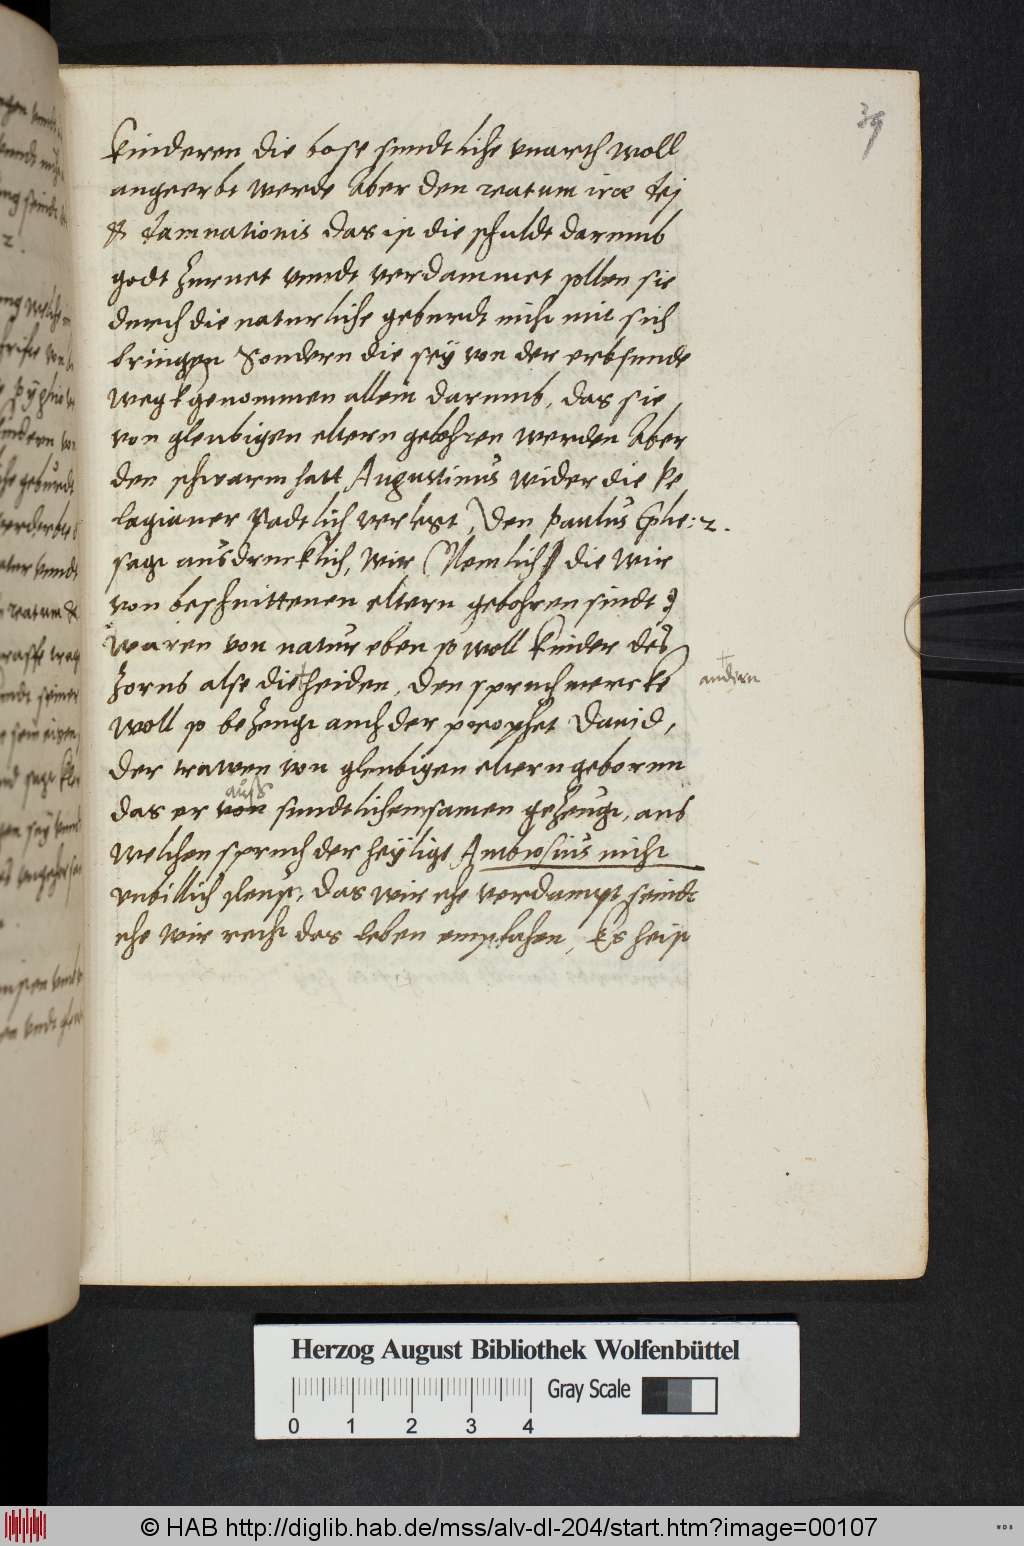 39
kinderen die bose sundtliche vnarth woll
angeerbt werde Aber den reatum iræ Dej
& damnationis das ist die schuldt darumb
godt zurnet vnndt verdammet sollen sie
durch die naturliche geburdt nicht mit sich
bringen Sondern die seÿ von der erbsunde
wegkgenommen allein darumb, das sie
von gleubigen eltern gebohren werden Aber
den schwarm hatt Augustinus wider die Pe
lagianer stadtlich verlegt, Den Paulus Ephe: 2.
sagt ausdrucklich, Wir (Nemlich die wir
von beschnittenen eltern gebohren sindt)
waren von natur eben so woll kinder des
zorns alse die heiden, Den spruch mercke
andern
woll so bezeugt auch der prophet Dauid,
der trawen von gleubigen eltern geboren
das er von sundtlichem samen gezeugt, aus
auß
welchen spruch der heÿlige Ambrosius nicht
vnbillich sleust, das wir ehe verdampt seindt
ehe wir recht das leben empfahen, Es heist
Herzog August Bibliothek Wolfenbüttel
Gray Scale
0 1 2 3 4
© HAB http://diglib.hab.de/mss/alv-dl-204/start.htm?image=00107